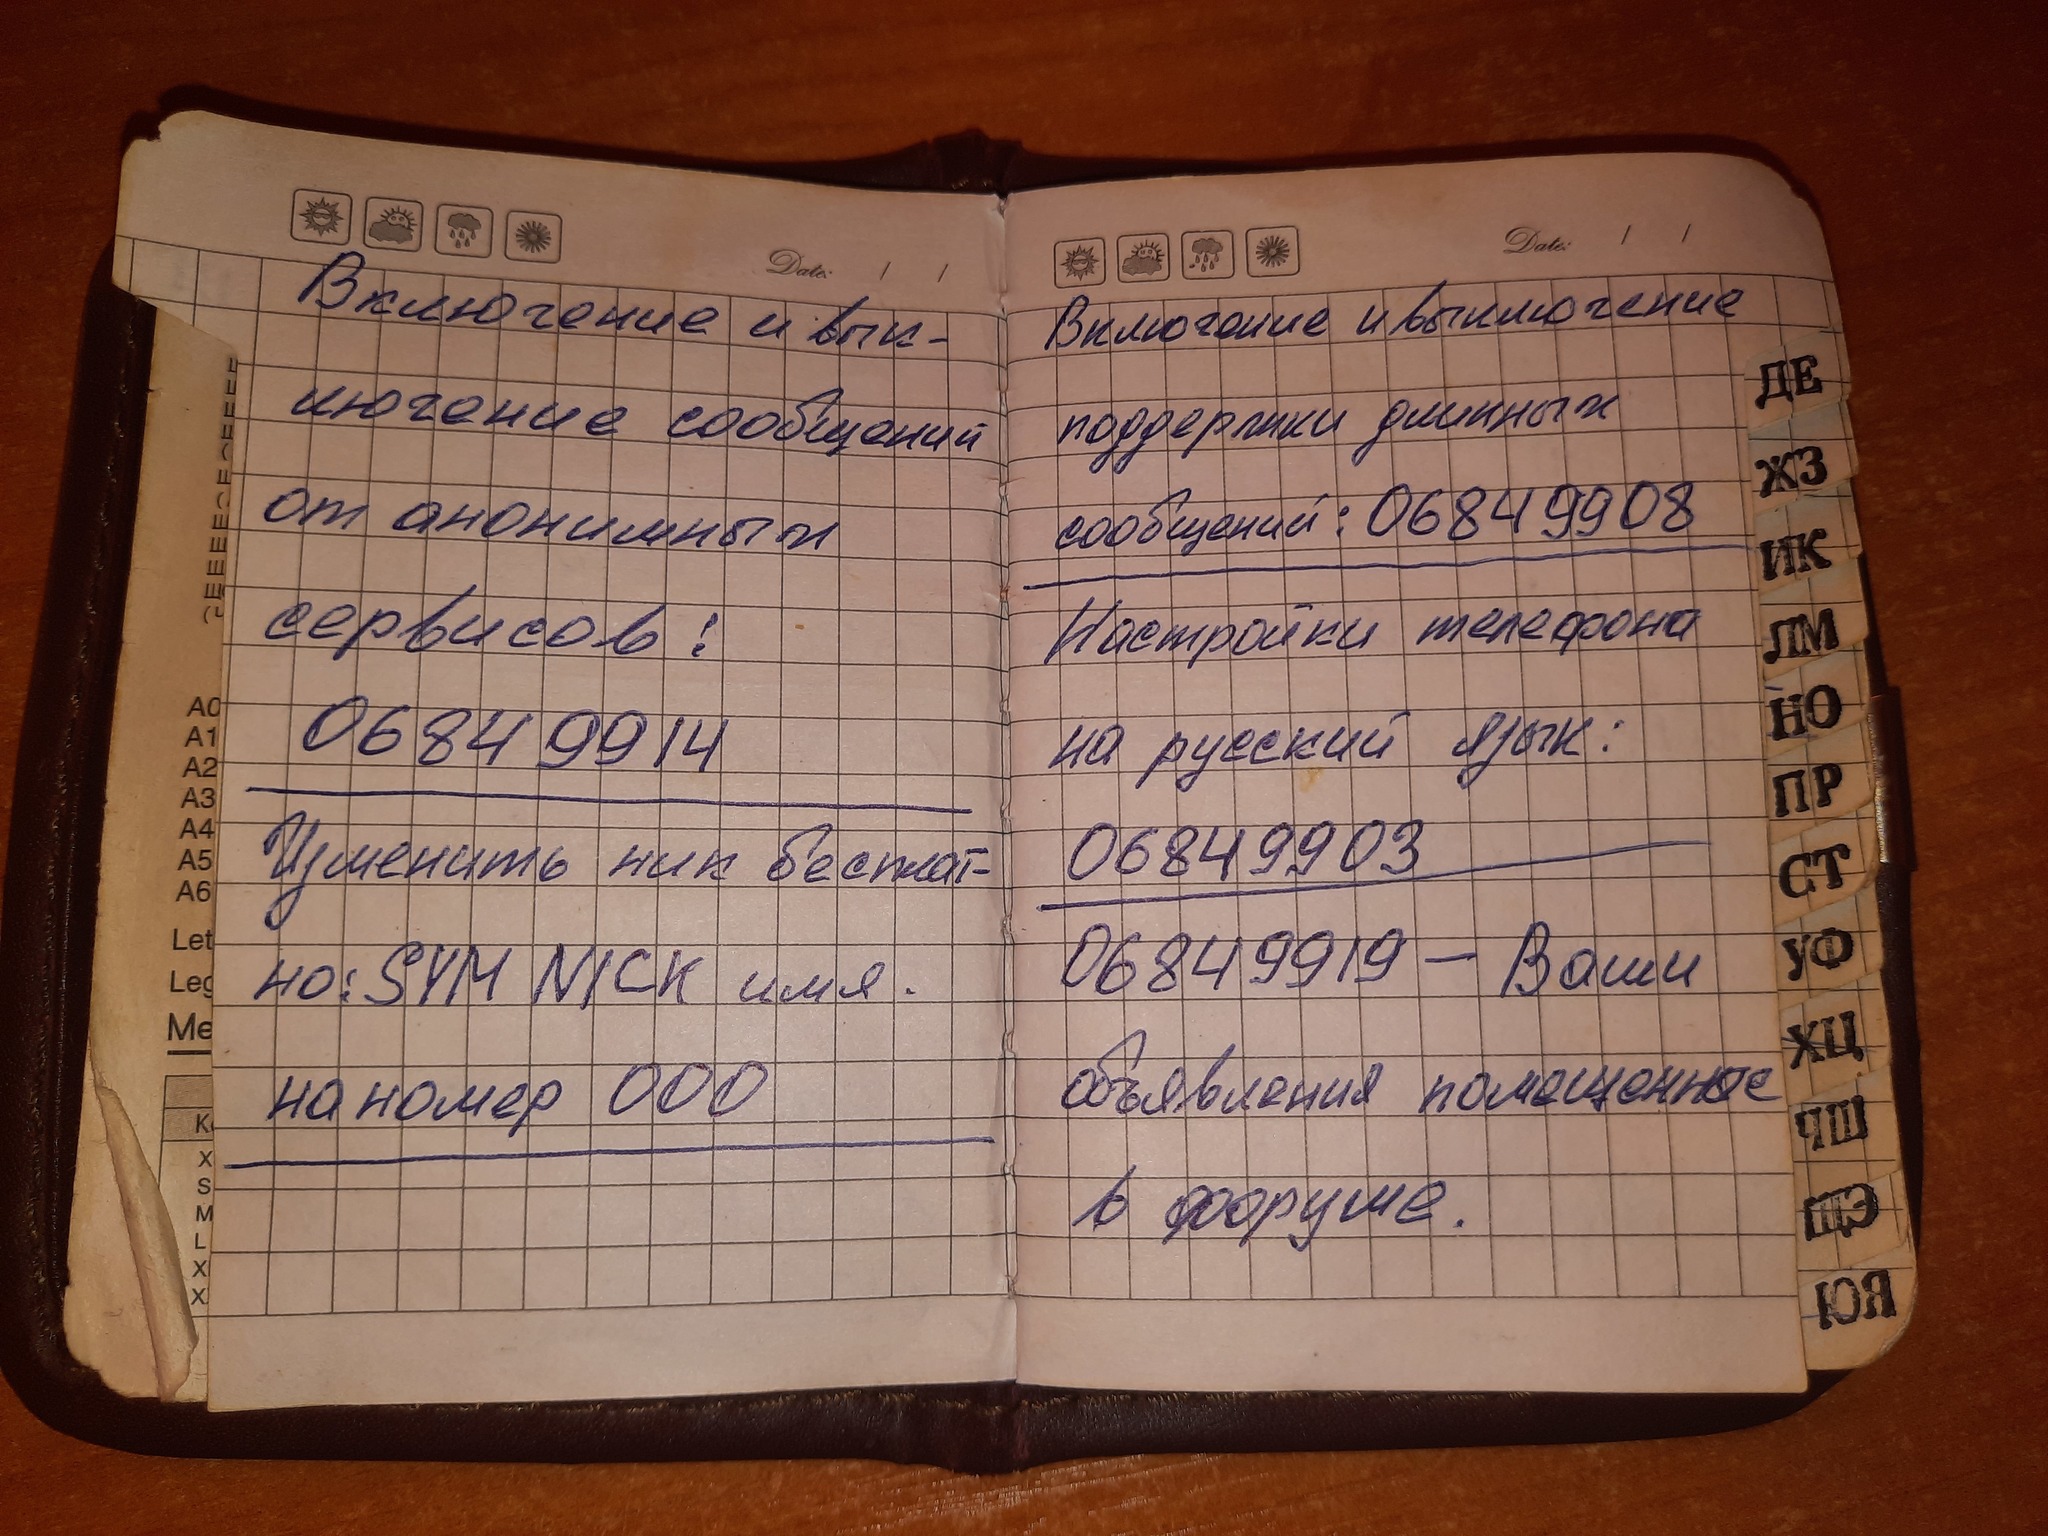 Date: / /
Включение и вык-
лючение сообщений
от анонимных
сервисов:
06849914
Изменить ник бесплат-
но: SYM NICK имя.
на номер 000
A1
A2
A3
A4
A5
A6
Let
Leg
Me
X
S
M
L
X
X
Date: / /
Включение и выключение
поддержки длинных
сообщений: 06849908
Настройки телефона
на русский язык:
06849903
06849919 – Ваши
объявления помещенные
в форуме.
ДЕ
ЖЗ
ИК
ЛМ
НО
ПР
СТ
УФ
ХЦ
ЧШ
ЩЭ
ЮЯ